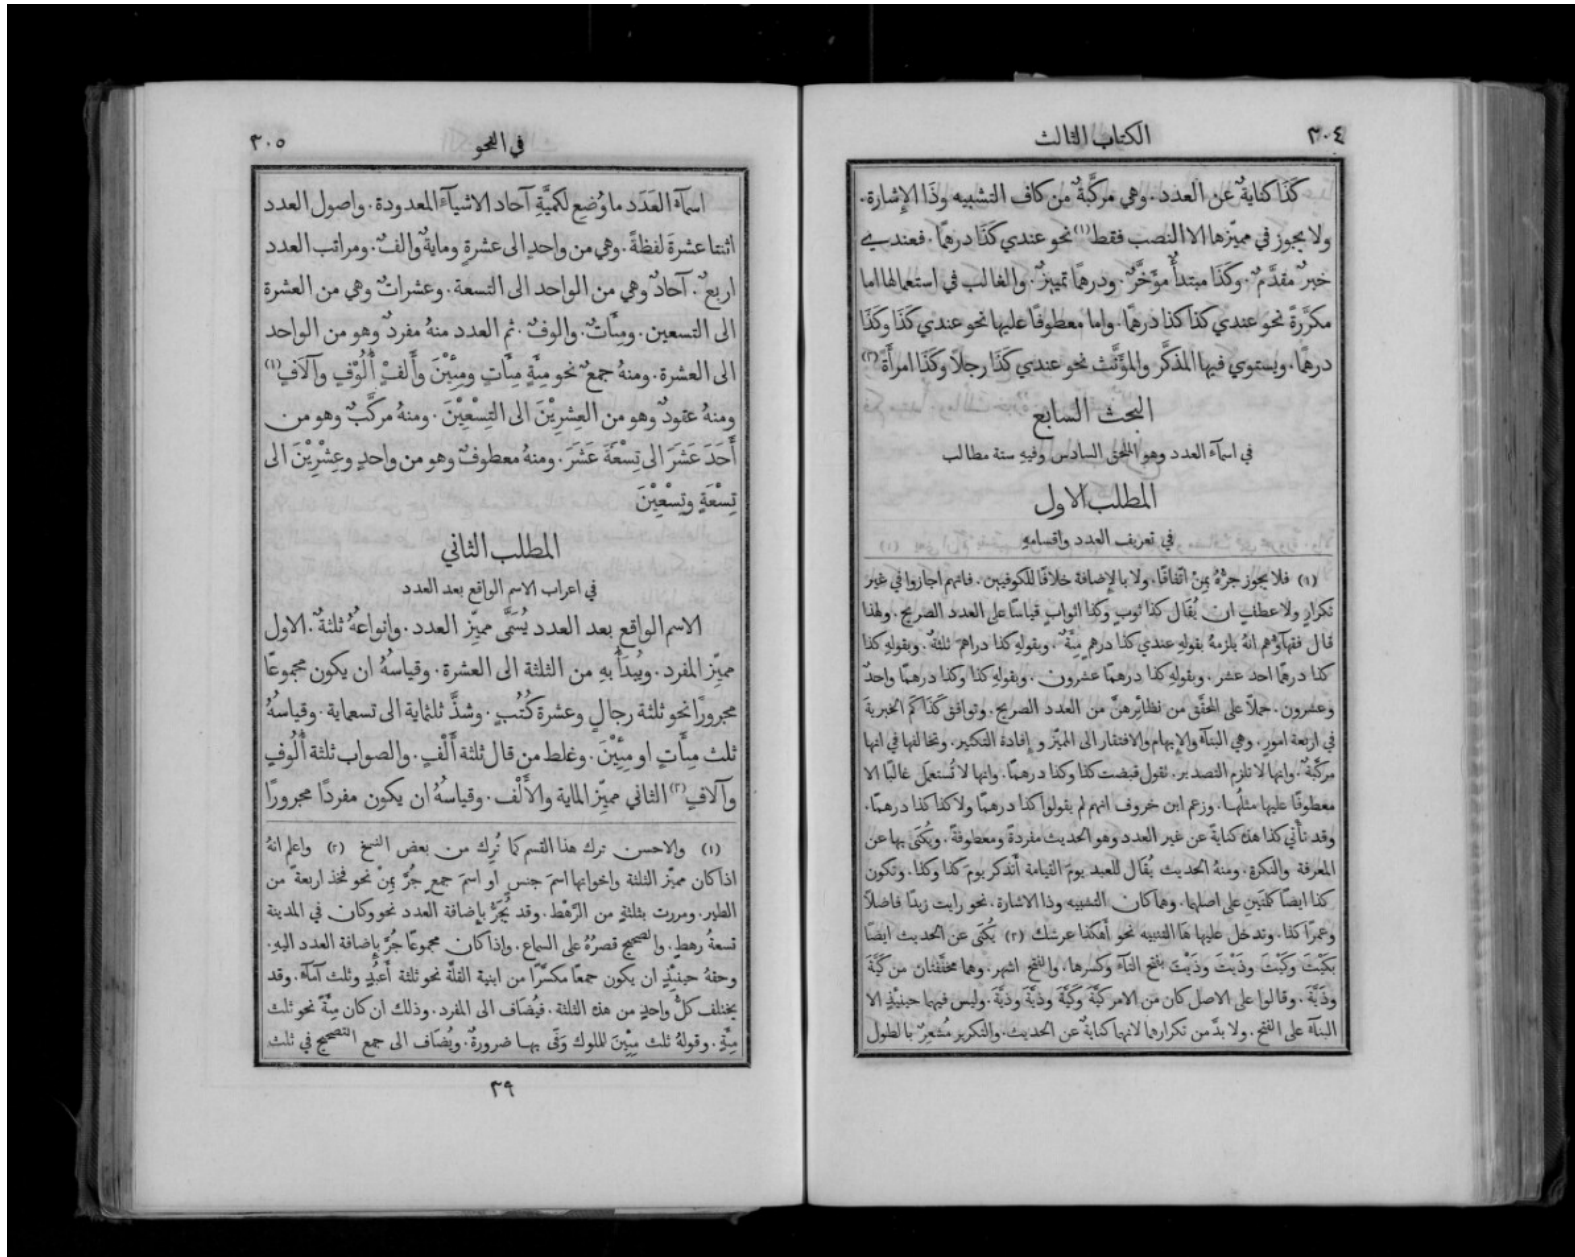 ٣٠٤
الكتاب الثالث
كَذَا كنايةٌ عن العدد. وهي مركَّبةٌ من كاف التشبيه وذَا الإِشارة.
ولا يجوز في مميّزها الا النصب فقط (١) نحو عندي كَذَا درهمًا. فعندي
خبرٌ مقدَّمٌ. وكَذَا مبتدأٌ مؤَخَّرٌ. ودرهمًا تمييزٌ. والغالب في استعمالها اما
مكرَّرةً نحو عندي كَذا كذا درهمًا. واما معطوفًا عليها نحو عندي كَذَا وكَذَا
درهمًا. ويستوي فيها المذكَّر والمؤَنَّث نحو عندي كَذَا رجلًا وكَذَا امرأَة (٢)
البحث السابع
في اسماءَ العدد وهو الملحق السادس وفيهِ ستة مطالب
المطلب الاول
في تعريف العدد واقسامهِ
(١) فلا يجوز جرُّهُ بِمِنْ اتّفاقًا. ولا بالإِضافة خلافًا للكوفيين. فانهم اجازوا في غير
تكرارٍ ولا عطفٍ ان يُقَال كذا ثوبٍ وكذا اثوابٍ قياسًا على العدد الصريح. ولهذا
قال فقهآؤهم انهُ يلزمهُ بقولهِ عندي كذا درهمٍ مِئَةٌ. وبقولهِ كذا دراهمَ ثلثةٌ. وبقولهِ كذا
كذا درهمًا احد عشر. وبقولهِ كذا درهمًا عشرون. وبقولهِ كذا وكذا درهمًا واحدٌ
وعشرون. حملًا على المحقَّق من نظائِرهنَّ من العدد الصريح. وتوافق كَذَا كَم الخبرية
في اربعة امور. وهي البنآءَ والإبهام والافتقار الى المميّز و إفادة التكثير. وتخالفها في انها
مركَّبةٌ. وانها لا تلزم التصدير. تقول قبضت كذا وكذا درهمًا. وانها لا تُستعمَل غالبًا الا
معطوفًا عليها مثلُهـا. وزعم ابن خروف انهم لم يقولوا كذا درهمًا ولا كذا كذا درهمًا.
وقد تأْتي كذا هذهِ كنايةً عن غير العدد وهو الحديث مفردةً ومعطوفةً. ويُكنَى بها عن
المعرفة والنكرة. ومنهُ الحديث يُقَال للعبد يومَ القيامة أَتذكر يومَ كذا وكذا. وتكون
كذا ايضًا كلمَتَينِ على اصلهما. وهما كاف التشبيه وذا الاشارة. نحو رايت زيدًا فاضلًا
وعمرًا كذا. وتدخل عليها هَا التنبيه نحو أَهكذا عرشك (٢) يُكنَى عن الحديث ايضًا
بكَيْتَ وكَيْتَ. وذَيْتَ وذَيْتَ بفتح التآءَ وكسرها. والفتح اشهر. وهما مخفَّفتان من كَيَّةَ
وذَيَّةَ. وقالوا على الاصل كان من الامر كَيَّةَ وكَيَّةَ وذيَّةَ وذيَّةَ. وليس فيهما حينئِذٍ الا
البنآءَ على الفتح. ولا بدَّ من تكرارهما لانهما كنايةٌ عن الحديث. والتكرير مُشعِرٌ بالطول
في النحو
٣٠٥
اسمآءَ العَدَد ما وُضِع لكميَّةِ آحاد الاشيآءَ المعدودة. واصول العدد
اثنتا عشرةَ لفظةً. وهي من واحدٍ الى عشرةٍ ومايةٌ والفٌ. ومراتب العدد
اربعٌ. آحادٌ وهي من الواحد الى التسعة. وعشراتٌ وهي من العشرة
الى التسعين. ومِئَاتٌ. والوفٌ. ثم العدد منهُ مفردٌ وهو من الواحد
الى العشرة. ومنهُ جمعٌ نحو مِئَةٍ مِئَاتٍ ومِئِيْنَ وأَلفٍ أُلُوْفٍ وآلَافٍ (١)
ومنهُ عقودٌ وهو من العِشرِيْنَ الى التِسْعِيْنَ. ومنهُ مركَّبٌ وهو من
أَحَدَ عَشَرَ الى تِسْعَةَ عَشَرَ. ومنهُ معطوفٌ وهو من واحدٍ وعِشْرِيْنَ الى
تِسْعَةٍ وتِسْعِيْنَ
المطلب الثاني
في اعراب الاسم الواقع بعد العدد
الاسم الواقع بعد العدد يُسَمَّى مميّز العدد. وانواعهُ ثلثةٌ. الاول
مميّز المفرد. ويُبدَأُ بهِ من الثلثة الى العشرة. وقياسُهُ ان يكون مجموعًا
مجرورًا نحو ثلثة رجالٍ وعشرة كُتُبٍ. وشذَّ ثلثماية الى تسعماية. وقياسهُ
ثلث مِئَاتٍ او مِئِيْنَ. وغلط من قال ثلثة أَلْفٍ. والصواب ثلثة أُلُوفٍ
وآلافٍ (٢) الثاني مميّز الماية والأَلْف. وقياسهُ ان يكون مفردًا مجرورًا
(١) والاحسن ترك هذا القسم كما تُرِك من بعض النسخ (٢) واعلم انهُ
اذا كان مميّز الثلثة واخواتها اسمَ جنسٍ او اسمَ جمعٍ جُرَّ بِمِنْ نحو فخذ اربعة من
الطير. ومررت بثلثةٍ من الرَّهْط. وقد يُجَرُّ بإِضافة العدد نحو وكان في المدينة
تسعةُ رهطٍ. والصحيح قصرُهُ على السماع. وإذا كان مجموعًا جُرَّ بإِضافة العدد اليهِ.
وحقهُ حينئِذٍ ان يكون جمعًا مكسَّرًا من ابنية القلَّة نحو ثلثة أَعبُدٍ وثلث آمآءٍ. وقد
يختلف كلُّ واحدٍ من هذه الثلثة. فيُضَاف الى المفرد. وذلك ان كان مِئَةً نحو ثلث
مِئَةٍ. وقولهُ ثلث مِئِيْنَ للملوك وَفَى بهـا ضرورةٌ. ويُضَاف الى جمع التصحيح في ثلث
٣٩